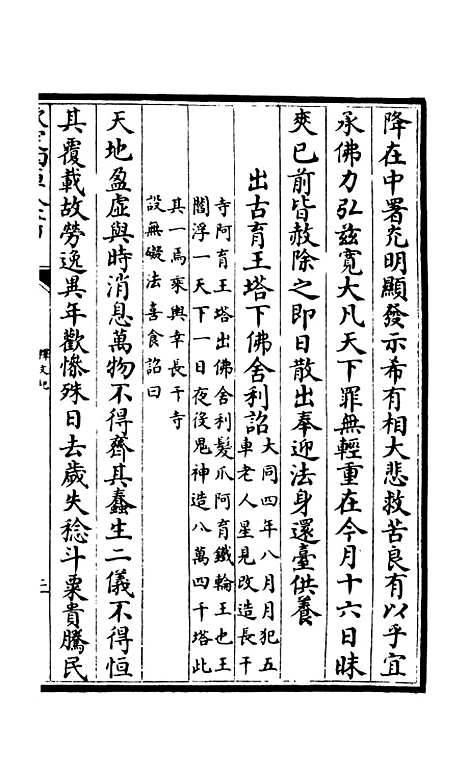 降在中署充明顯發示希有相大悲救苦良有以乎宜
承佛力弘兹寬大凡天下罪無輕重在今月十六日昧
爽已前皆赦除之即日散出奉迎法身還臺供養
出古育王塔下佛舍利詔
大同四年八月月犯五
車老人星見改造長干
寺阿育王塔出佛舍利髮爪阿育鐵輪王也王
閻浮一天下一日夜役鬼神造八萬四千塔此
其一焉乘輿幸長干寺
設無礙法喜食詔曰
天地盈虛與時消息萬物不得齊其蠢生二儀不得恒
其覆載故勞逸異年歡慘殊日去歲失稔斗粟貴騰民
釋文紀